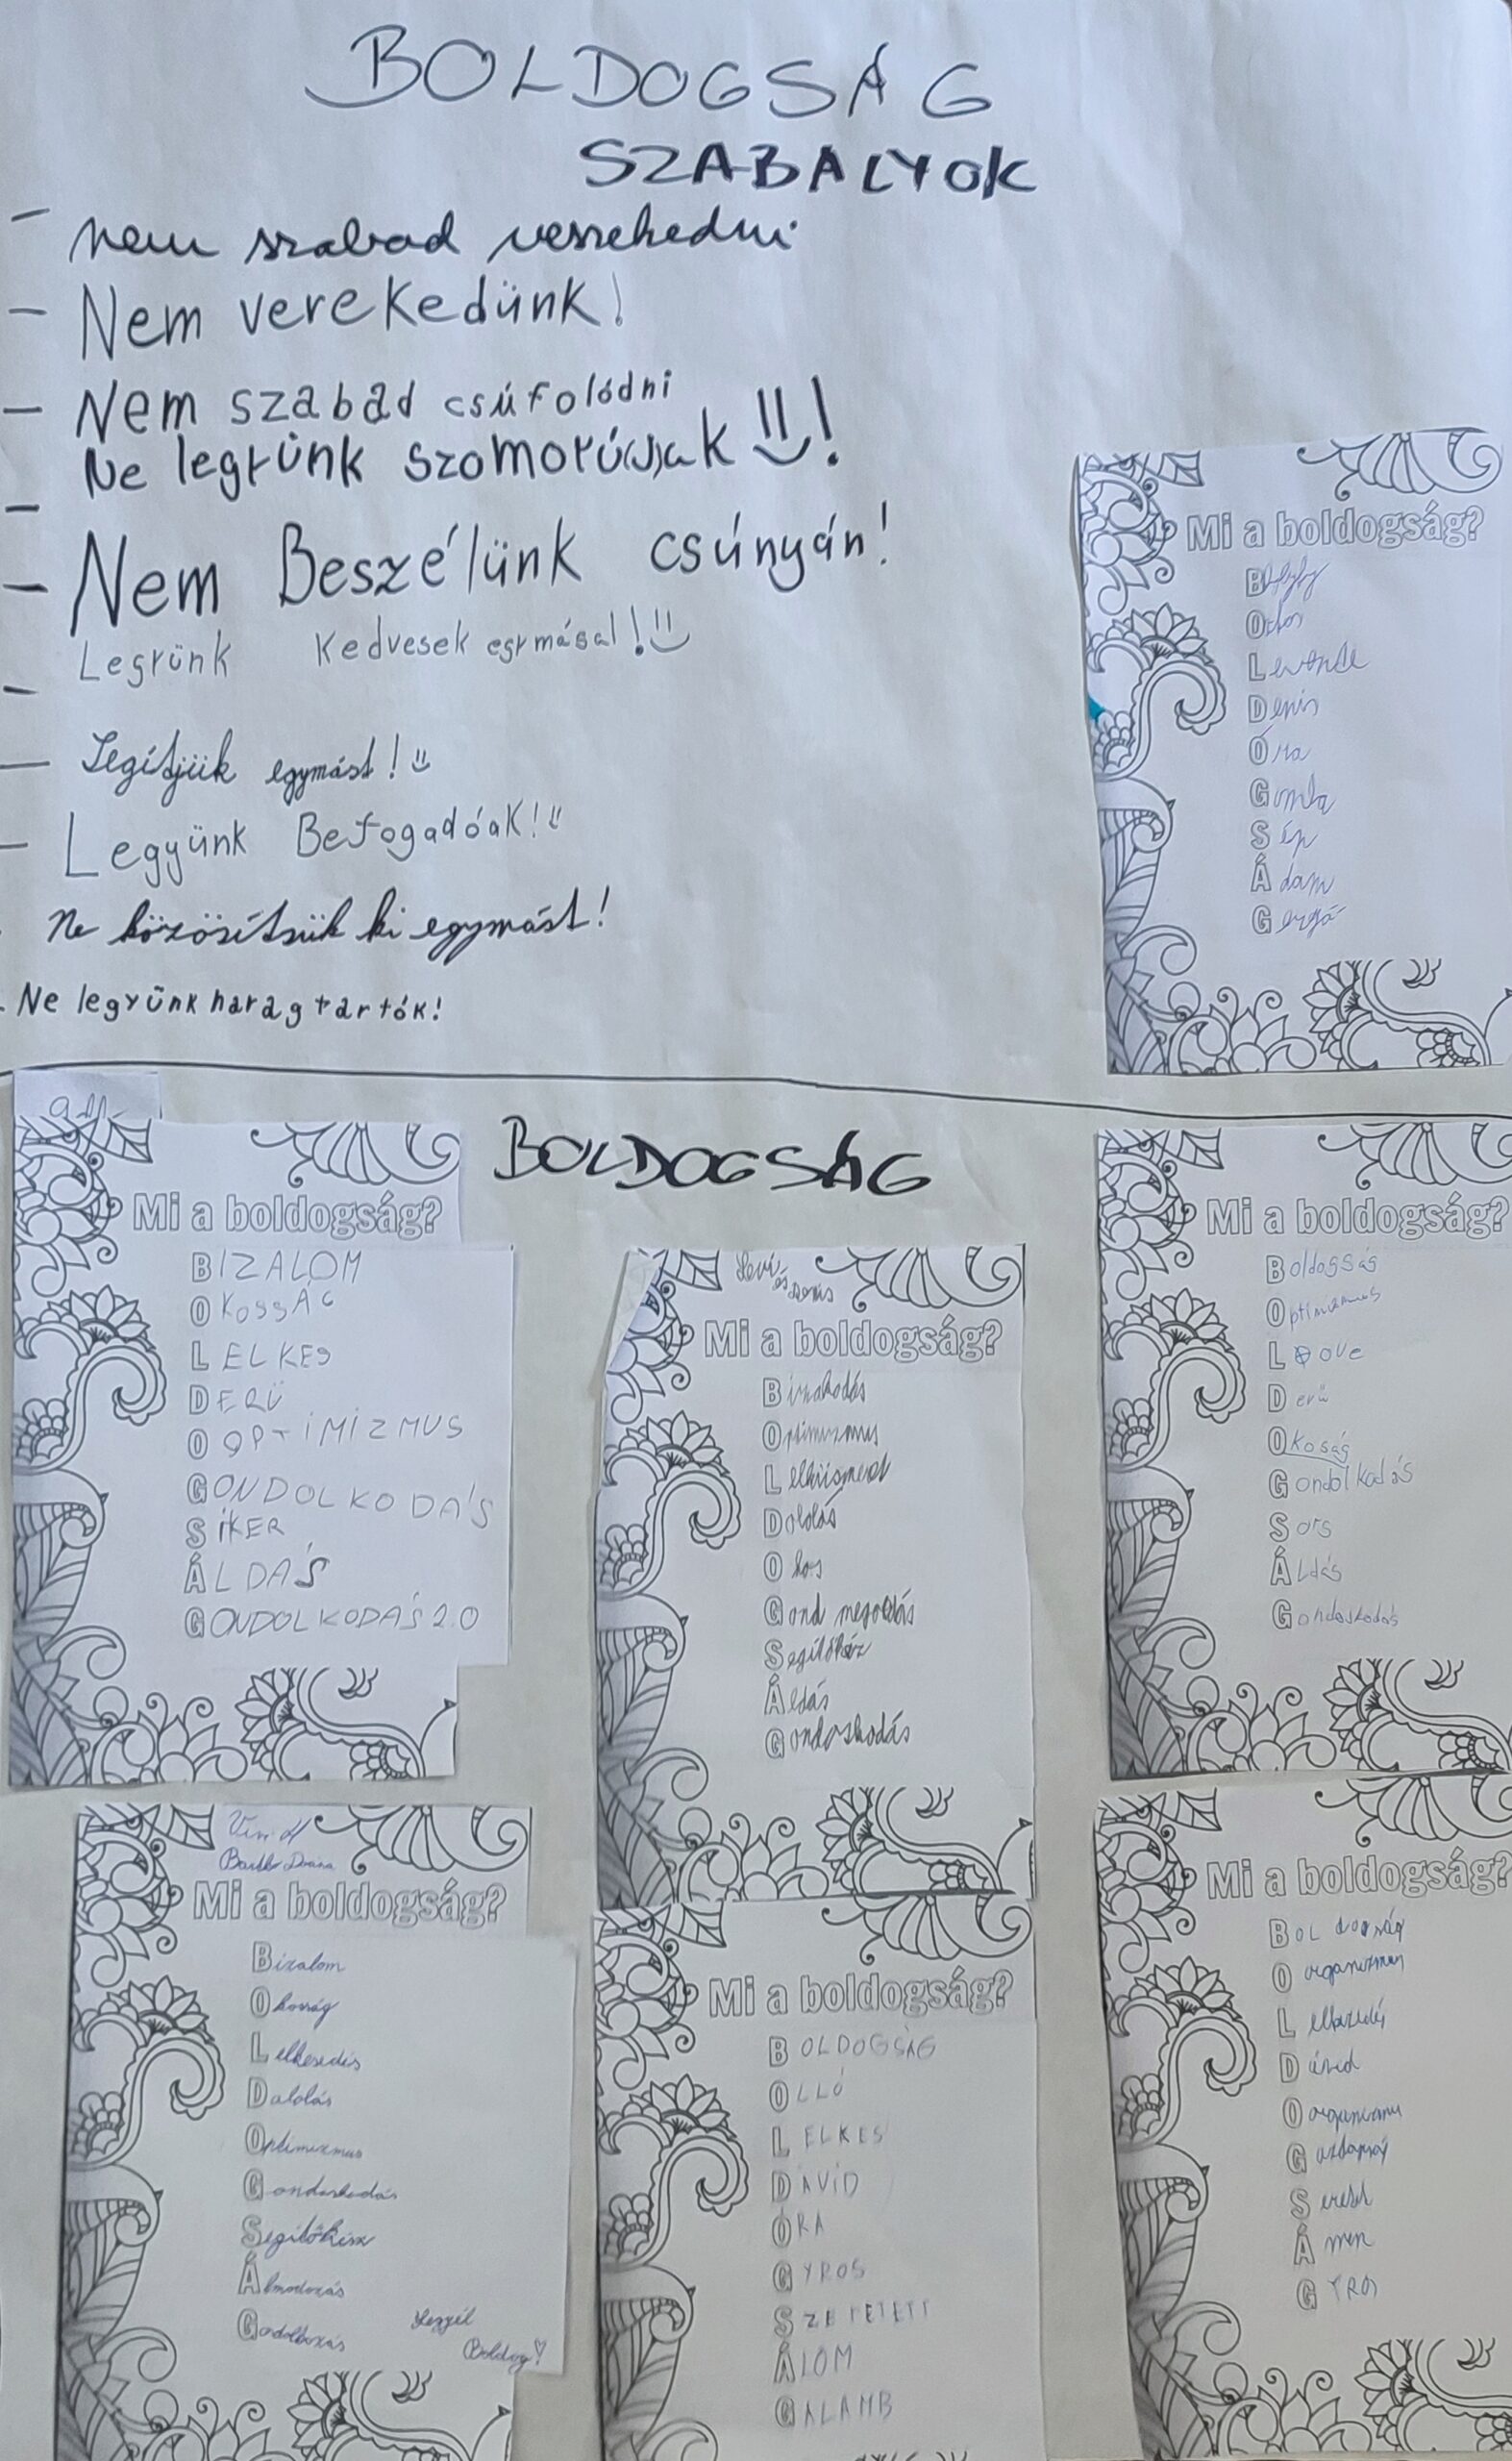 BOLDOGSÁG
SZABALYOK
- nem szabad veszekedni
- Nem verekedünk!
- Nem szabad csúfolódni
- Ne legyünk szomorú(s)ak !
- Nem Beszélünk csúnyán!
- Legyünk Kedvesek egymásal!
- Segítjük egymást!
- Legyünk Befogadóak!
- Ne közösítsük ki egymást!
- Ne legyünk haragtartók!
Mi a boldogság?
Okos
Levente
Denis
Óra
Gomba
Sép
Ádám
Gergő
BOLDOGSÁG
Mi a boldogság?
BIZALOM
OKOSSÁG
LELKES
DERÜ
OOPTIMIZMUS
GONDOLKODÁS
SIKER
ÁLDÁS
GONDOLKODÁS 2.0
Levi
és
Denis
Mi a boldogság?
Optimizmus
Lelkiismeret
Dalolás
Okos
Gond megoldás
Segítőkéz
Áldás
Gondoskodás
Mi a boldogság?
Boldogság
Optimizmus
Love
Derű
Okoság
Gondolkodás
Sors
Áldás
Gondoskodás
Mi a boldogság?
Bizalom
Okosság
Lelkesedés
Dalolás
Optimizmus
Gondoskodás
Segítőkész
Álmodozás
Legyél
Boldog!
Mi a boldogság?
BOLDOGSÁG
OLLÓ
LELKES
DÁVID
ÓRA
GYROS
SZERETETT
ÁLOM
GALAMB
Mi a boldogság?
BOLdogság
Oorganizmus
Lelkezedés
Dávid
Gazdagság
Áman
GYROS